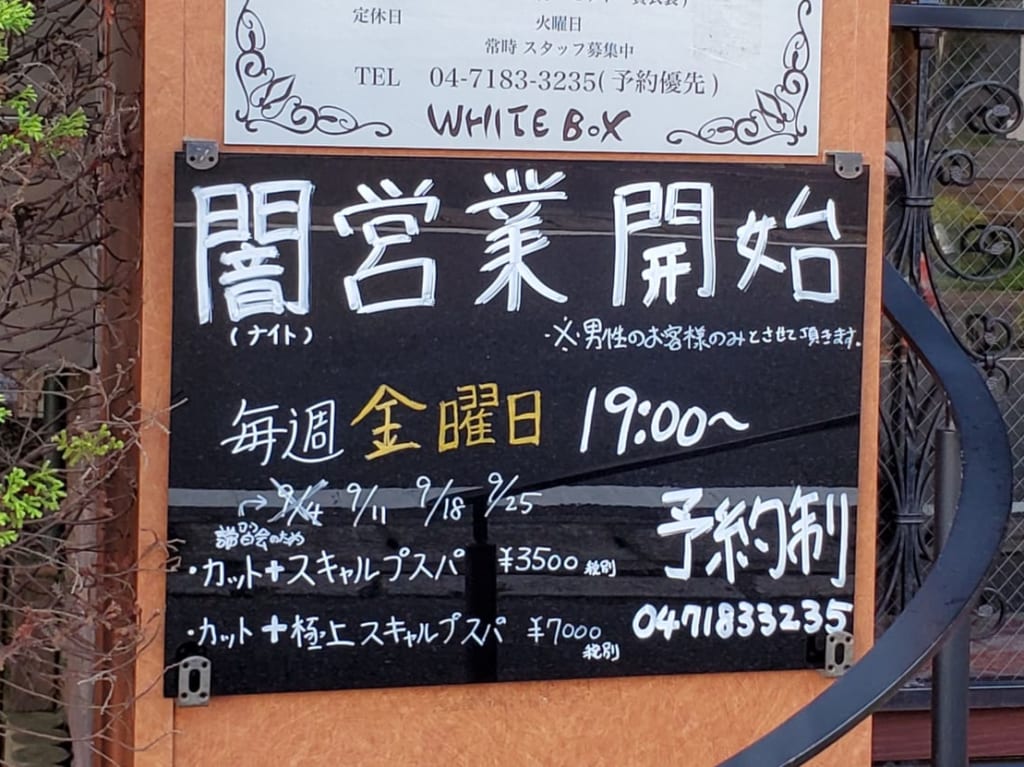 定休日　火曜日
常時 スタッフ募集中
TEL 04-7183-3235(予約優先)
WHITE BOX
闇営業 開始
(ナイト)
※男性のお客様のみとさせて頂きます。
毎週 金曜日 19:00〜
9/4 9/11 9/18 9/25
のため
予約制
・カット+スキャルプスパ ¥3500 税別
・カット+極上スキャルプスパ ¥7000 税別
0471833235